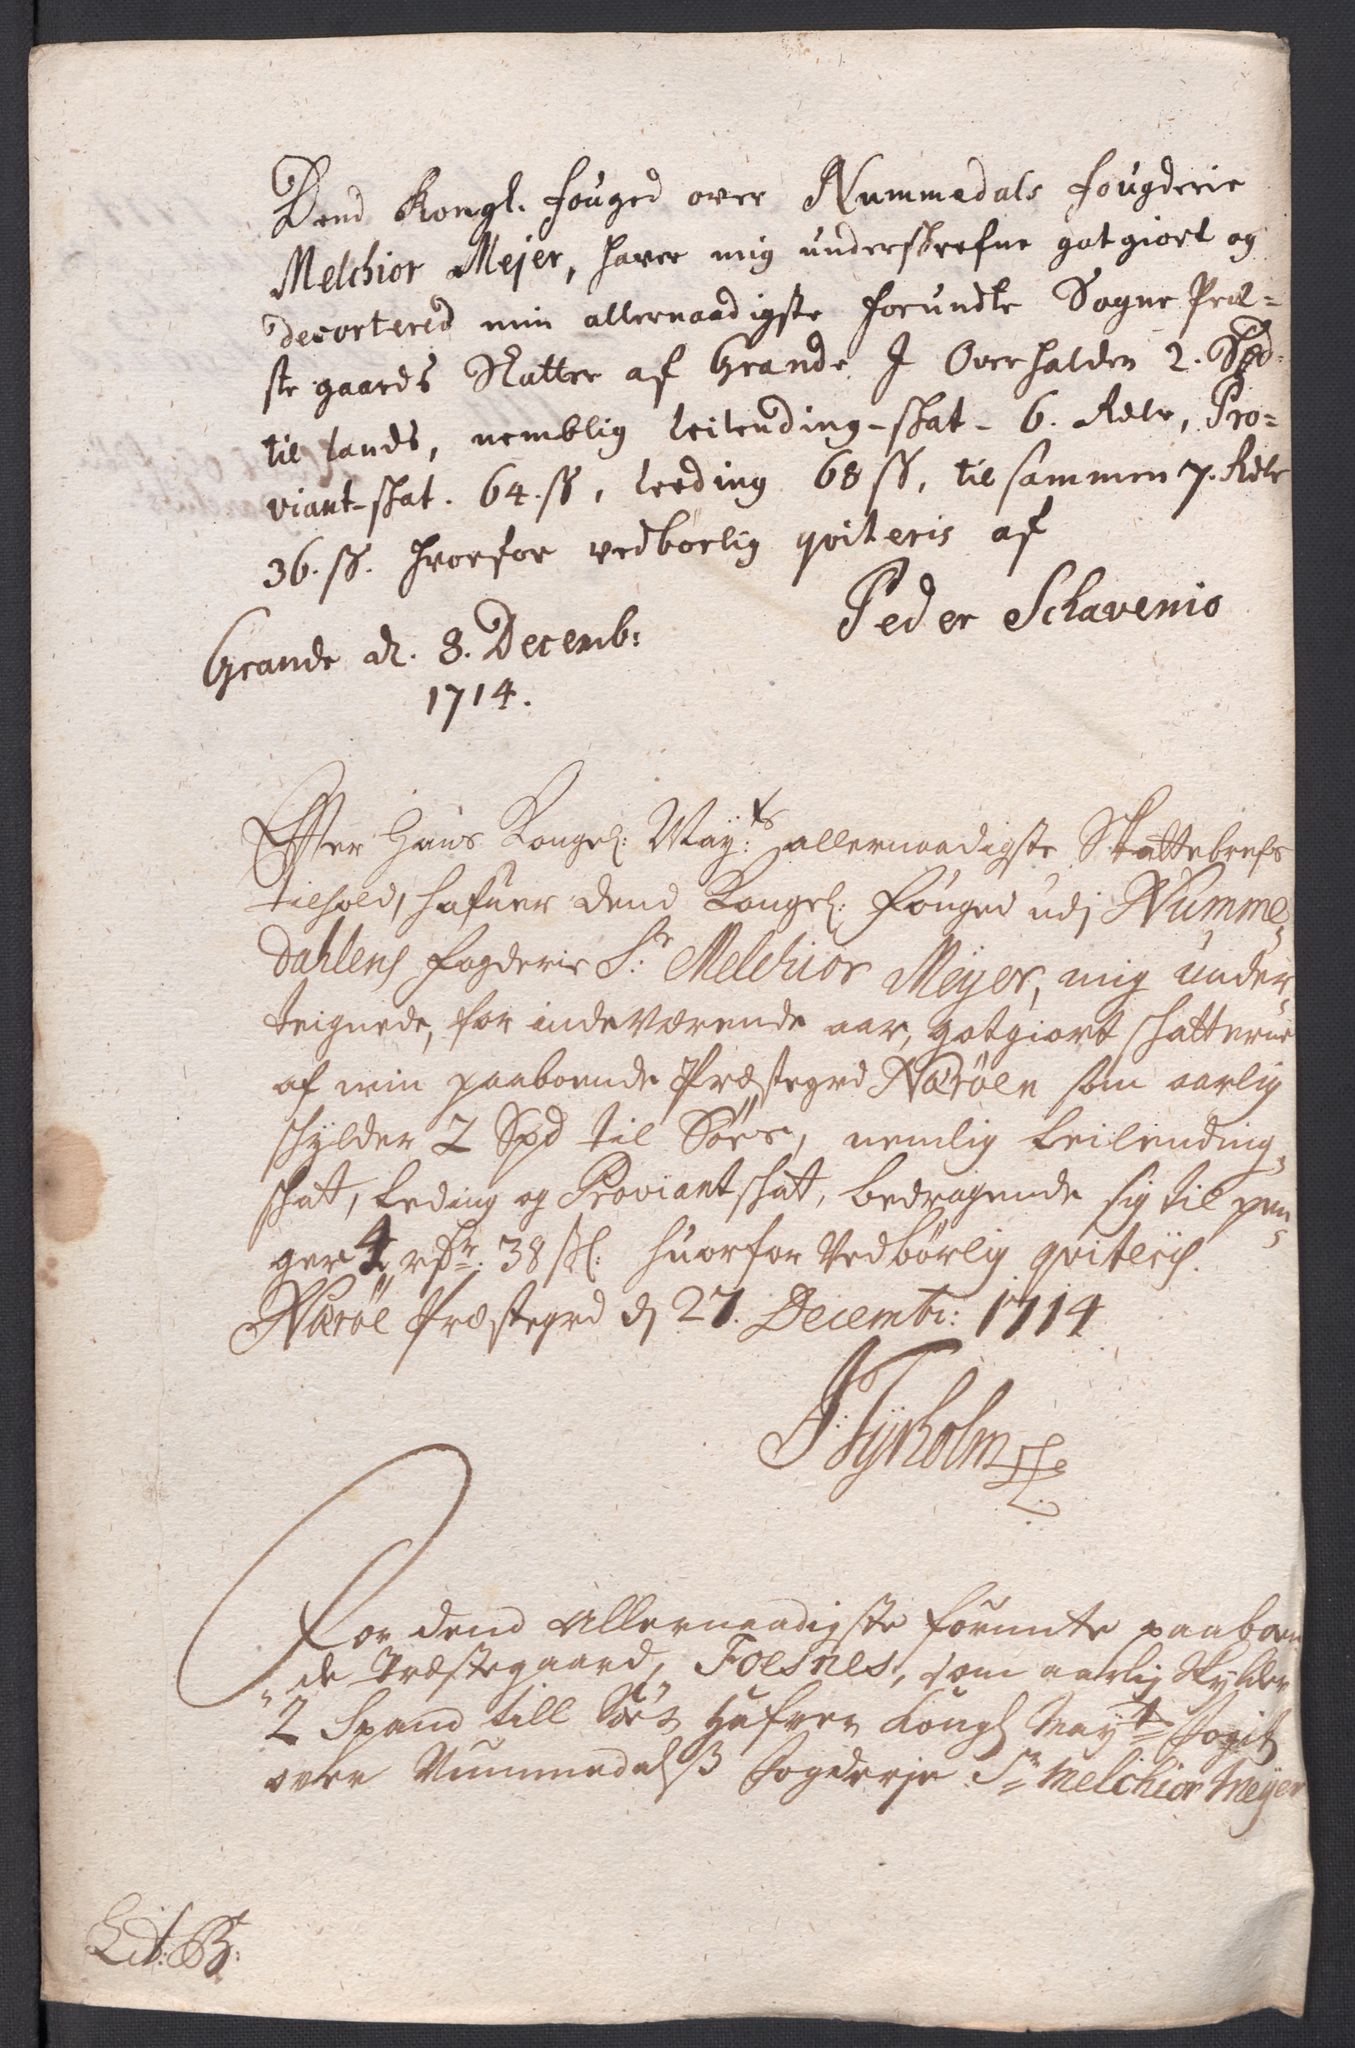 Dend Kongl. fouged over Nummedals fougderie
Melchior Mejer, haver mig underskrefne gotgiort og
decortered min allernaadigste forundte Sogne Præ-
ste gaards Skatter af Grande J Overhalden 2. Spd.
til lands, nemblig Leilending-skat - 6. Rdlr, Pro-
viant-skat. 64. ß, Leeding 68 ß, til sammen 7. Rdlr
36. ß. hvorfor vedbørlig qviteris af
Peder Schavenio
Grande d. 8. Decemb:
1714.
Efter Hans Kongel: May:ts allernaadigste Skattebrefs
tilhold, hafuer dend Kongel: Fouged udj Numme-
dahlens fogderie Sr: Melchior Meyer, mig under-
teignede, for indeværende aar, gotgiort skatterne
af min paaboende Præstegrd Nærøen som aarlig
skylder 2 Spd til Søes, nemlig Leilending-
skat, Leding og Proviantskat, bedragende sig til pen-
ger 4 rdr: 38 skl: huorfor Vedbørlig qviteris.
Nærøe Præstegrd d 27. Decembr: 1714
J: Tyrholm
For dend Allernaadigste forunte paaboen
de Præstegaard, Foesnes, som aarlig Skylder
2 Spand till Søes Hafver Kongl Mayt Fogit
over Nummedalß Fogderje Sr Melchior Meyer
Lit: B: